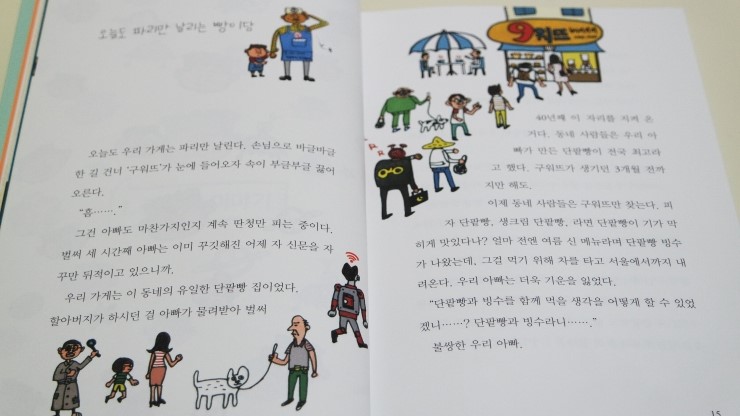 오늘도 파리만 날리는 빵이당
오늘도 우리 가게는 파리만 날린다. 손님으로 바글바글
한 길 건너 '구워뜨'가 눈에 들어오자 속이 부글부글 끓어
오른다.
"흠……."
그건 아빠도 마찬가지인지 계속 딴청만 피는 중이다.
벌써 세 시간째 아빠는 이미 꾸깃해진 어제 자 신문을 자
꾸만 뒤적이고 있으니까.
우리 가게는 이 동네의 유일한 단팥빵 집이었다.
할아버지가 하시던 걸 아빠가 물려받아 벌써
9워뜨
40년째 이 자리를 지켜 온
거다. 동네 사람들은 우리 아
빠가 만든 단팥빵이 전국 최고라
고 했다. 구워뜨가 생기던 3개월 전까
지만 해도.
이제 동네 사람들은 구워뜨만 찾는다. 피
자 단팥빵, 생크림 단팥빵, 라면 단팥빵이 기가 막
히게 맛있다나? 얼마 전엔 여름 신 메뉴라며 단팥빵 빙수
가 나왔는데, 그걸 먹기 위해 차를 타고 서울에서까지 내
려온다. 우리 아빠는 더욱 기운을 잃었다.
"단팥빵과 빙수를 함께 먹을 생각을 어떻게 할 수 있었
겠니……? 단팥빵과 빙수라니……."
불쌍한 우리 아빠.
15